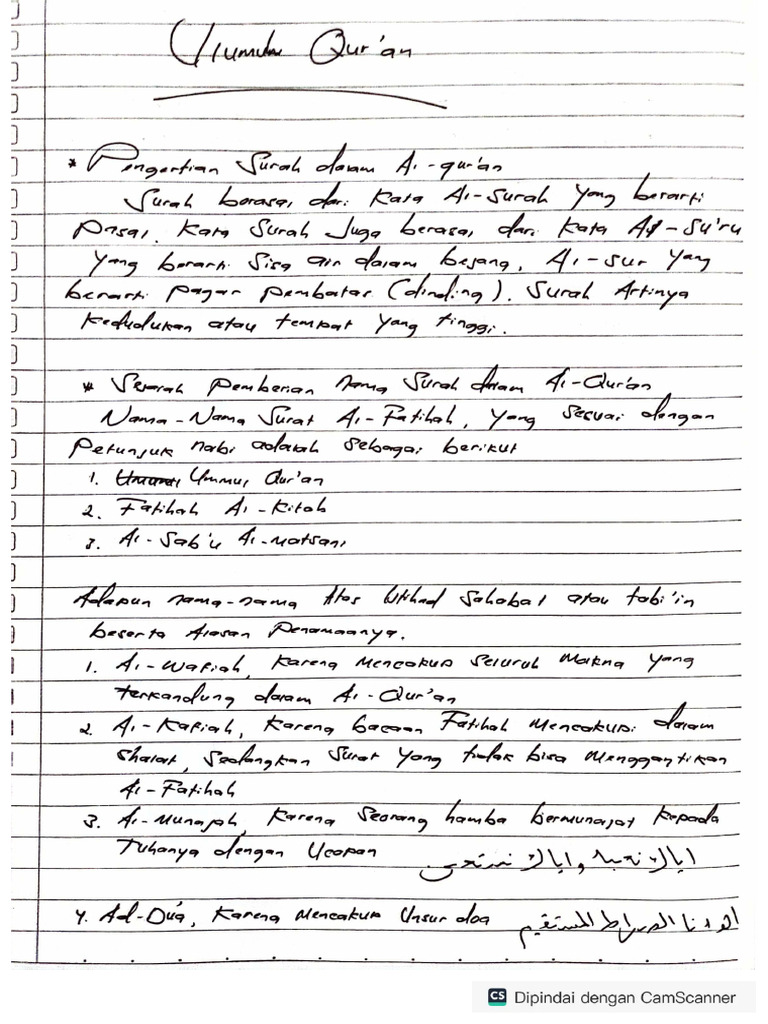 Ulumul Qur'an
* Pengertian Surah dalam Al-qur'an
Surah berasal dari Kata Al-Surah Yang berarti
Pasal. Kata Surah Juga berasal dari Kata As-Su'ru
Yang berarti Sisa air dalam bejana, Al-sur Yang
berarti pagar pembatas (dinding). Surah Artinya
Kedudukan atau tempat yang tinggi.
* Sejarah Pemberian nama Surah dalam Al-Qur'an
Nama-Nama Surat Al-Fatihah, Yang sesuai dengan
Petunjuk nabi adalah sebagai berikut
1. Ummul Qur'an
2. Fatihah Al-Kitab
3. Al-Sab'u Al-matsani
Adapun nama-nama Atas Ijtihad Sahabat atau tabi'in
beserta Alasan Penamaanya.
1. Al-Wafiah, Karena Mencakup Seluruh Makna yang
terkandung dalam Al-Qur'an
2. Al-Kafiah, Karena bacaan Fatihah Mencakupi dalam
Shalat, Sedangkan Surat Yang tidak bisa Menggantikan
Al-Fatihah
3. Al-Munajah, Karena Seorang hamba bermunajat Kepada
Tuhanya dengan Ucapan اياك نعبد واياك نستعين
4. Ad-Du'a, Karena Mencakup Unsur doa اهدنا الصراط المستقيم
CS Dipindai dengan CamScanner